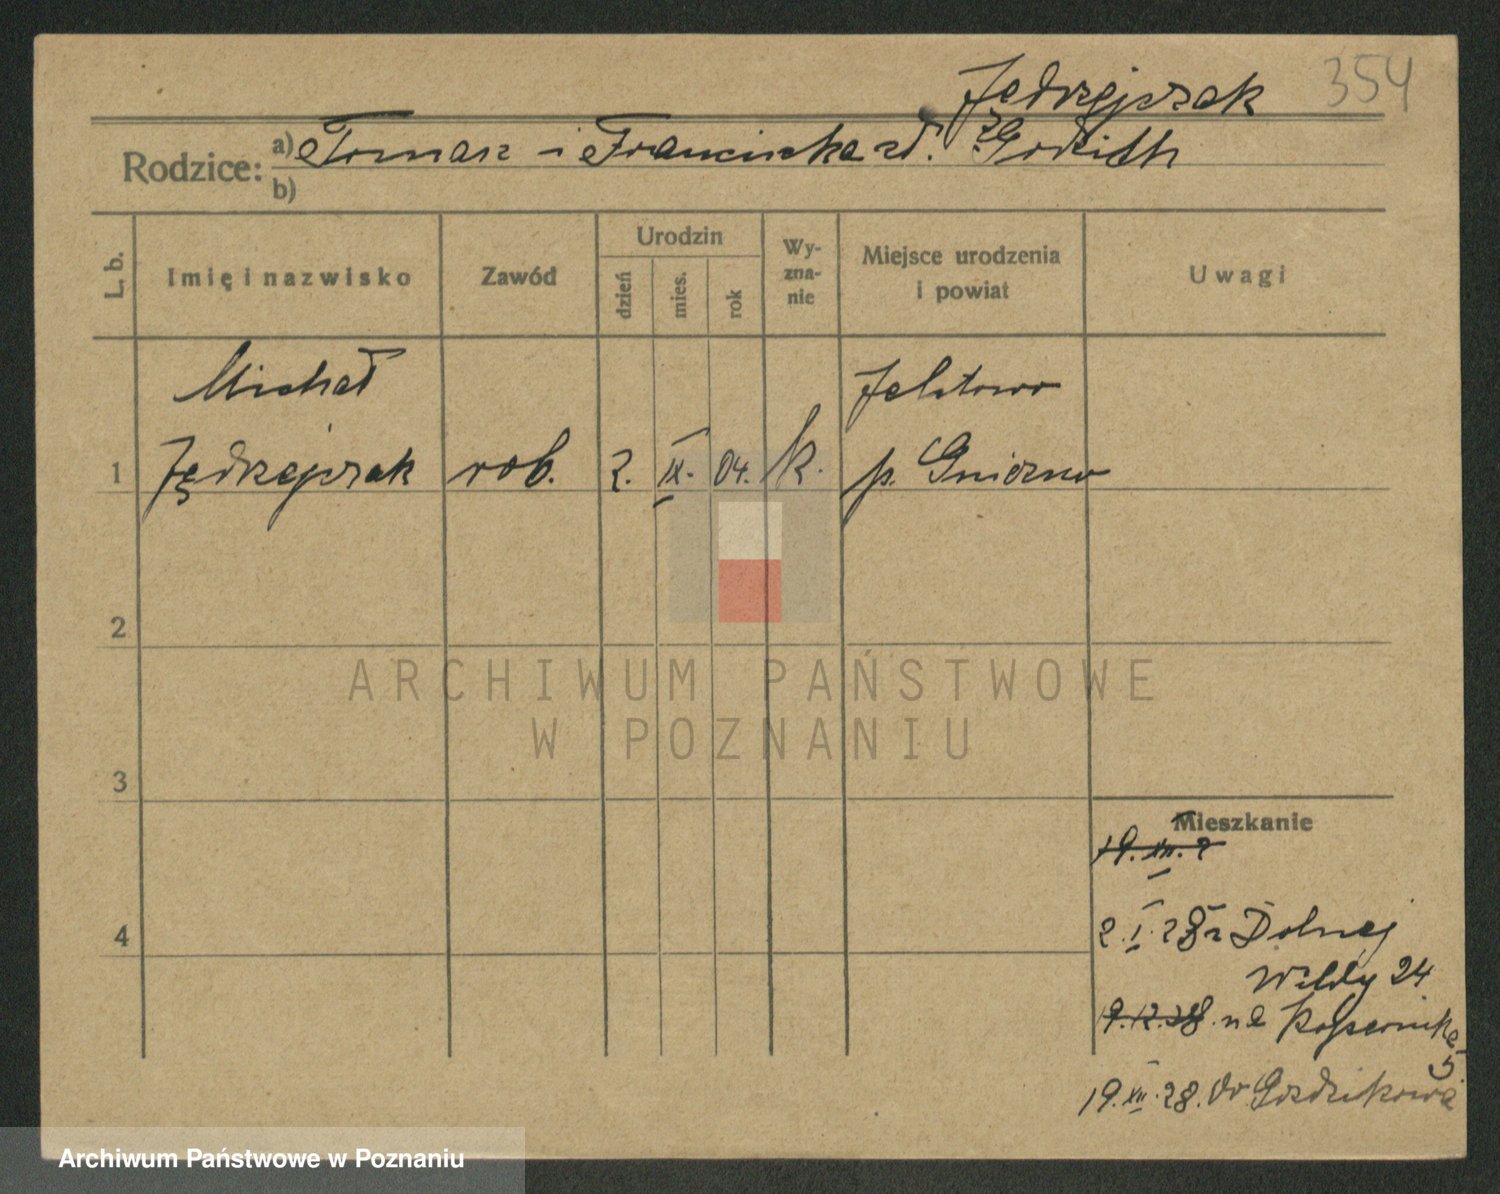 Jędrzejczak 354
Rodzice: a) Tomasz i Franciszka zd.
b)
L. b. Imię i nazwisko Zawód Urodzin dzień mies. rok Wyznanie Miejsce urodzenia i powiat Uwagi
Michał Jelitowo
1 Jędrzejczak rob. 2. IX. 04. k. p. Gniezno
2
ARCHIWUM PAŃSTWOWE
W POZNANIU
3
Mieszkanie
19. XII. 2
4
2. I. 28 z Dolnej
Wildy 24
19.12.28. na Kopernika
5
19. XII. 28. do Goździkowa
Archiwum Państwowe w Poznaniu